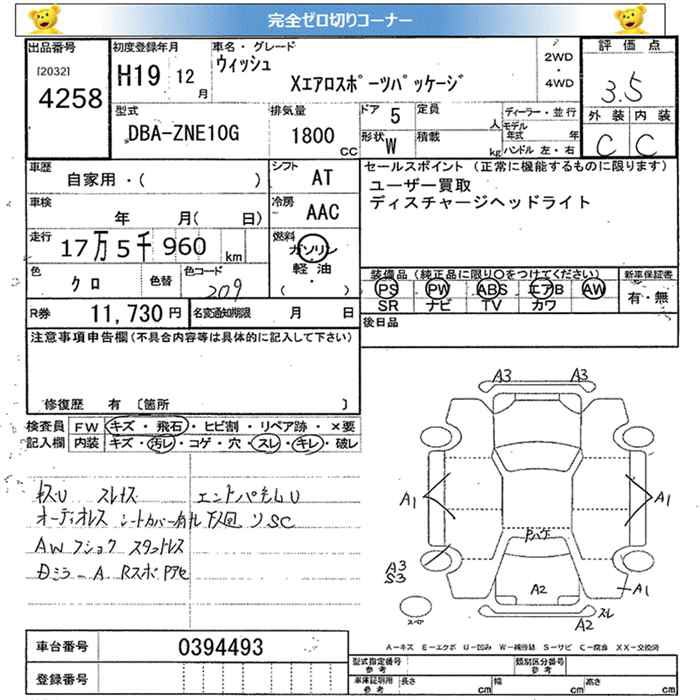 完全ゼロ切りコーナー
出品番号
[2032]
4258
初度登録年月
H19 12月
車名・グレード
ウィッシュ
Xエアロスポーツパッケージ
2WD
・
4WD
評価点
3.5
外装 内装
C C
型式
DBA-ZNE10G
排気量
1800
CC
ドア 5
形状 W
定員
人
積載
kg
ディーラー・並行
モデル年式 年
ハンドル 左・右
車歴
自家用・( )
シフト
AT
車検
年 月( 日)
冷房
AAC
走行
17万5千960km
燃料
ガソリン
軽油
( ・ )
色
クロ
色替
色コード
209
R券 11,730円
名変通知期限 月 日
セールスポイント (正常に機能するものに限ります)
ユーザー買取
ディスチャージヘッドライト
装備品(純正品に限り○をつけてください)
新車保証書
PS PW ABS エアB AW
有・無
SR ナビ TV カワ
後日品
注意事項申告欄(不具合内容等は具体的に記入して下さい)
修復歴 有 〔箇所 〕
検査員
記入欄
FW キズ・飛石・ヒビ割・リペア跡・×要
内装 キズ・汚レ・コゲ・穴・スレ・キレ・破レ
オーディオレス シートカバー有
AW
A3 A3
A1 A1
A3
S3
A2
A1
A2 スレ
スペア
A－キズ E－エクボ U－凹み W－補修跡 S－サビ C－腐食 XX－交換済
車台番号 0394493
登録番号
型式指定番号
参考
類別区分番号
参考
車庫証明用
参考
長さ cm 幅 cm 高さ cm